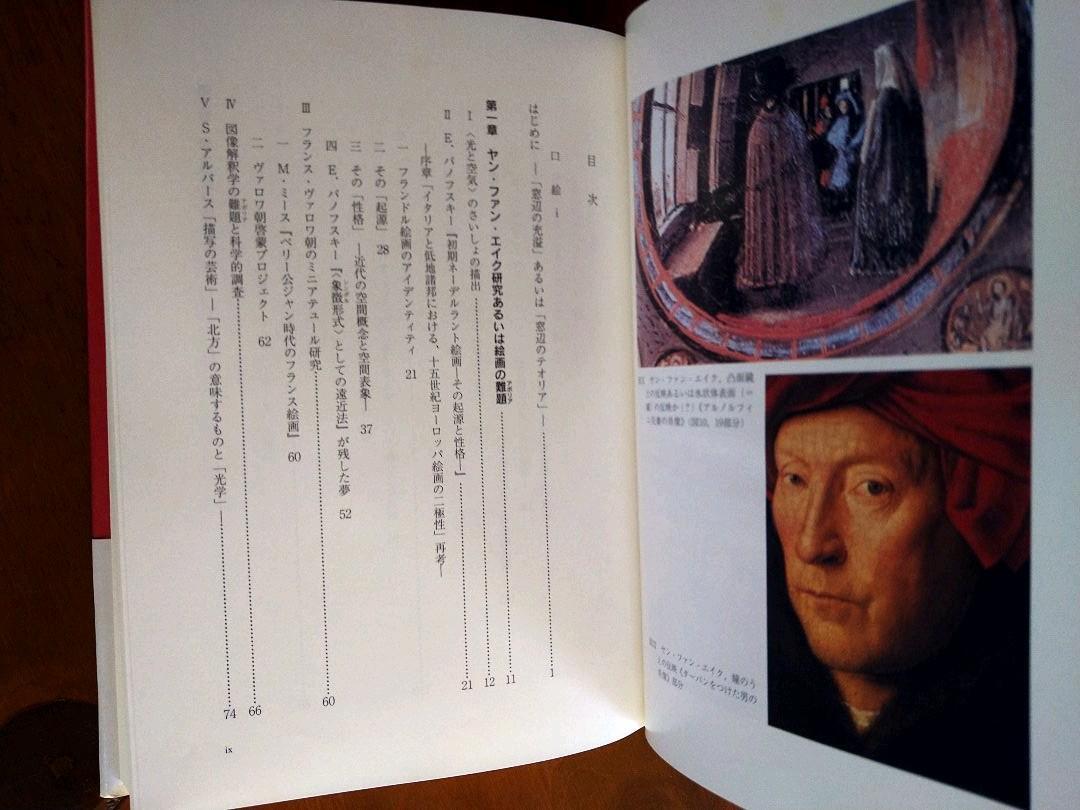 XI ヤン・ファン・エイク，凸面鏡
上の反映あるいは水状体表面（一
の反映か（？）《アルノルフィ
ニ夫妻の肖像》（図10，19部分）
ヤン・ファン・エイク，瞳のう
えの反映《ターバンをつけた男の
肖像》部分
目次
口絵 i
はじめに ―「窓辺の充溢」あるいは「窓辺のテオリア」― 1
第一章 ヤン・ファン・エイク研究あるいは絵画の難題 アポリア 11
Ⅰ 〈光と空気〉のさいしょの描出 12
Ⅱ E．パノフスキー『初期ネーデルラント絵画―その起源と性格―』 21
―序章「イタリアと低地諸邦における、十五世紀ヨーロッパ絵画の二極性」再考―
一 フランドル絵画のアイデンティティ 21
二 その「起源」 28
三 その「性格」―近代の空間概念と空間表象― 37
四 E．パノフスキー『〈象徴形式〉としての遠近法』が残した夢 52
Ⅲ フランス・ヴァロワ朝のミニアテュール研究 60
一 M・ミース『ベリー公ジャン時代のフランス絵画』 60
二 ヴァロワ朝啓蒙プロジェクト 62
Ⅳ 図像解釈学の難題と科学的調査 アポリア 66
Ⅴ S・アルパース「描写の芸術」―「北方」の意味するものと「光学」― 74
ix